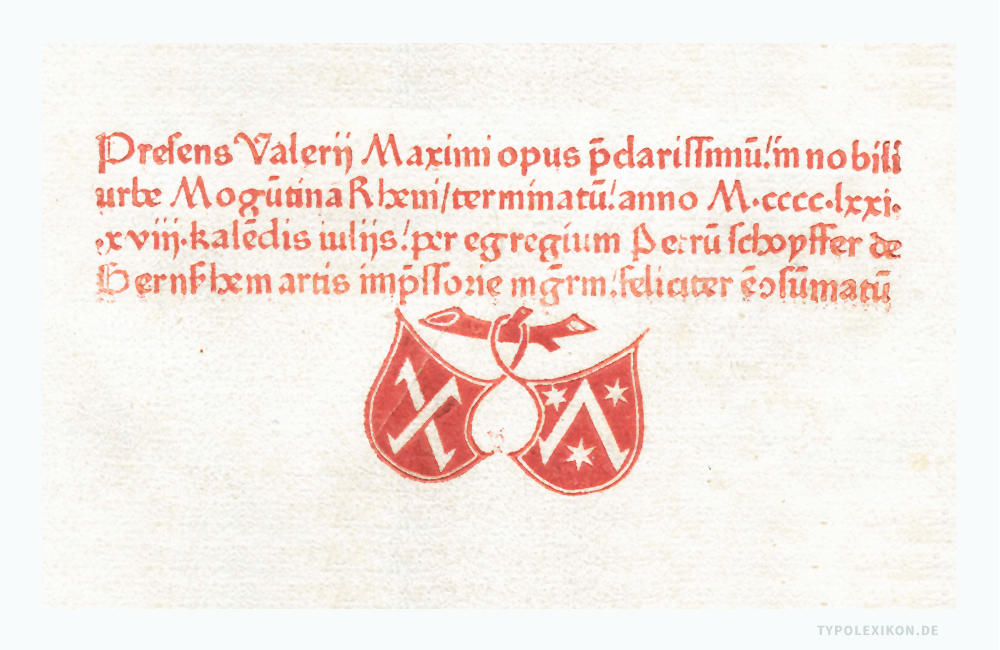 Preſens Valerij Maximi opus p̄clariſſimū/in nobili
urbe Mogūtina Rheni/terminatū/anno M·cccc·lxxi·
xviij·kalēdis iulijs/per egregium Petrū ſchoyffer de
Gernſhem artis imp̄ſſorie mḡrm/feliciter ēↄſūmatū
TYPOLEXIKON.DE